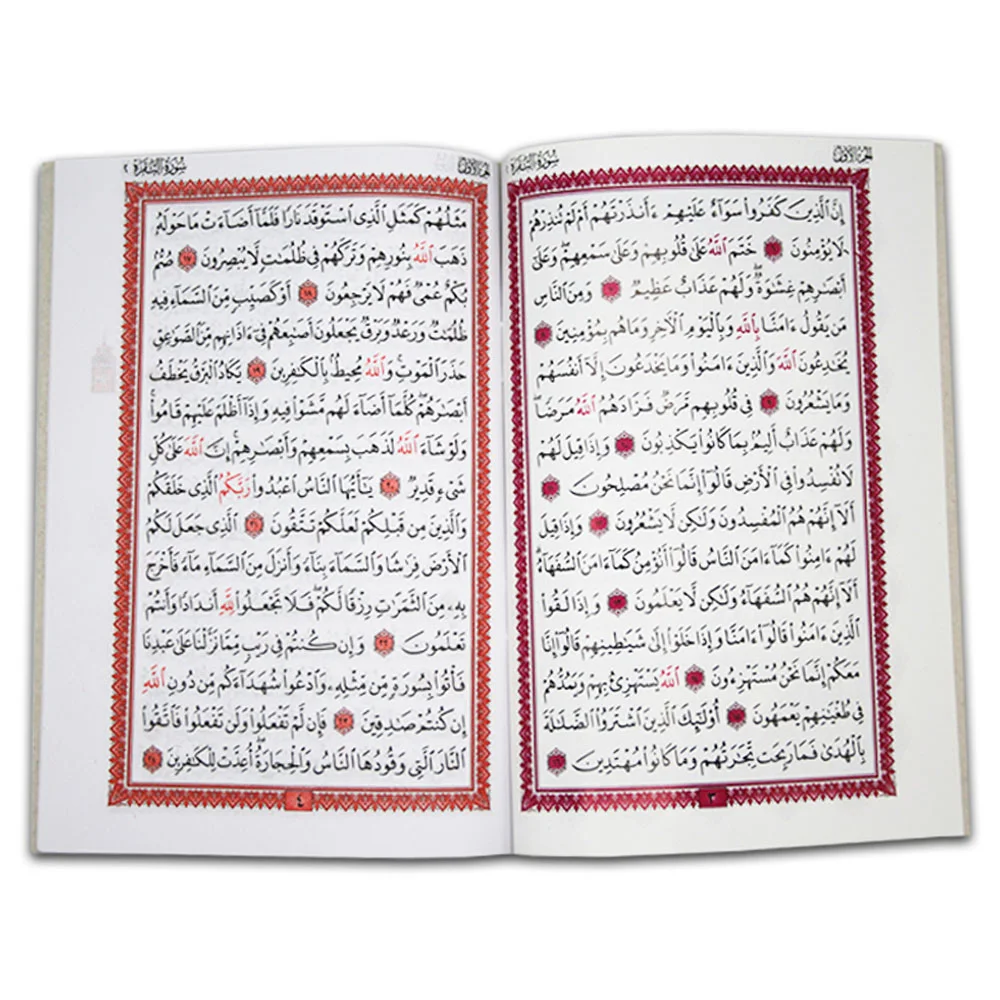 الجزء الأول
سورة البقرة ٢
إِنَّ ٱلَّذِينَ كَفَرُوا۟ سَوَآءٌ عَلَيْهِمْ ءَأَنذَرْتَهُمْ أَمْ لَمْ تُنذِرْهُمْ
لَا يُؤْمِنُونَ ٦ خَتَمَ ٱللَّهُ عَلَىٰ قُلُوبِهِمْ وَعَلَىٰ سَمْعِهِمْ ۖ وَعَلَىٰٓ
أَبْصَـٰرِهِمْ غِشَـٰوَةٌ ۖ وَلَهُمْ عَذَابٌ عَظِيمٌ ٧ وَمِنَ ٱلنَّاسِ
مَن يَقُولُ ءَامَنَّا بِٱللَّهِ وَبِٱلْيَوْمِ ٱلْـَٔاخِرِ وَمَا هُم بِمُؤْمِنِينَ ٨
يُخَـٰدِعُونَ ٱللَّهَ وَٱلَّذِينَ ءَامَنُوا۟ وَمَا يَخْدَعُونَ إِلَّآ أَنفُسَهُمْ
وَمَا يَشْعُرُونَ ٩ فِى قُلُوبِهِم مَّرَضٌ فَزَادَهُمُ ٱللَّهُ مَرَضًا ۖ
وَلَهُمْ عَذَابٌ أَلِيمٌۢ بِمَا كَانُوا۟ يَكْذِبُونَ ١٠ وَإِذَا قِيلَ لَهُمْ
لَا تُفْسِدُوا۟ فِى ٱلْأَرْضِ قَالُوٓا۟ إِنَّمَا نَحْنُ مُصْلِحُونَ ١١
أَلَآ إِنَّهُمْ هُمُ ٱلْمُفْسِدُونَ وَلَـٰكِن لَّا يَشْعُرُونَ ١٢ وَإِذَا قِيلَ
لَهُمْ ءَامِنُوا۟ كَمَآ ءَامَنَ ٱلنَّاسُ قَالُوٓا۟ أَنُؤْمِنُ كَمَآ ءَامَنَ ٱلسُّفَهَآءُ ۗ
أَلَآ إِنَّهُمْ هُمُ ٱلسُّفَهَآءُ وَلَـٰكِن لَّا يَعْلَمُونَ ١٣ وَإِذَا لَقُوا۟
ٱلَّذِينَ ءَامَنُوا۟ قَالُوٓا۟ ءَامَنَّا وَإِذَا خَلَوْا۟ إِلَىٰ شَيَـٰطِينِهِمْ قَالُوٓا۟ إِنَّا
مَعَكُمْ إِنَّمَا نَحْنُ مُسْتَهْزِءُونَ ١٤ ٱللَّهُ يَسْتَهْزِئُ بِهِمْ وَيَمُدُّهُمْ
فِى طُغْيَـٰنِهِمْ يَعْمَهُونَ ١٥ أُو۟لَـٰٓئِكَ ٱلَّذِينَ ٱشْتَرَوُا۟ ٱلضَّلَـٰلَةَ
بِٱلْهُدَىٰ فَمَا رَبِحَت تِّجَـٰرَتُهُمْ وَمَا كَانُوا۟ مُهْتَدِينَ ١٦
٣
الجزء الأول
سورة البقرة ٢
مَثَلُهُمْ كَمَثَلِ ٱلَّذِى ٱسْتَوْقَدَ نَارًا فَلَمَّآ أَضَآءَتْ مَا حَوْلَهُۥ
ذَهَبَ ٱللَّهُ بِنُورِهِمْ وَتَرَكَهُمْ فِى ظُلُمَـٰتٍ لَّا يُبْصِرُونَ ١٧ صُمٌّۢ
بُكْمٌ عُمْىٌ فَهُمْ لَا يَرْجِعُونَ ١٨ أَوْ كَصَيِّبٍ مِّنَ ٱلسَّمَآءِ فِيهِ
ظُلُمَـٰتٌ وَرَعْدٌ وَبَرْقٌ يَجْعَلُونَ أَصَـٰبِعَهُمْ فِىٓ ءَاذَانِهِم مِّنَ ٱلصَّوَٰعِقِ
حَذَرَ ٱلْمَوْتِ ۚ وَٱللَّهُ مُحِيطٌۢ بِٱلْكَـٰفِرِينَ ١٩ يَكَادُ ٱلْبَرْقُ يَخْطَفُ
أَبْصَـٰرَهُمْ ۖ كُلَّمَآ أَضَآءَ لَهُم مَّشَوْا۟ فِيهِ وَإِذَآ أَظْلَمَ عَلَيْهِمْ قَامُوا۟ ۚ
وَلَوْ شَآءَ ٱللَّهُ لَذَهَبَ بِسَمْعِهِمْ وَأَبْصَـٰرِهِمْ ۚ إِنَّ ٱللَّهَ عَلَىٰ كُلِّ
شَىْءٍ قَدِيرٌ ٢٠ يَـٰٓأَيُّهَا ٱلنَّاسُ ٱعْبُدُوا۟ رَبَّكُمُ ٱلَّذِى خَلَقَكُمْ
وَٱلَّذِينَ مِن قَبْلِكُمْ لَعَلَّكُمْ تَتَّقُونَ ٢١ ٱلَّذِى جَعَلَ لَكُمُ
ٱلْأَرْضَ فِرَٰشًا وَٱلسَّمَآءَ بِنَآءً وَأَنزَلَ مِنَ ٱلسَّمَآءِ مَآءً فَأَخْرَجَ
بِهِۦ مِنَ ٱلثَّمَرَٰتِ رِزْقًا لَّكُمْ ۖ فَلَا تَجْعَلُوا۟ لِلَّهِ أَندَادًا وَأَنتُمْ
تَعْلَمُونَ ٢٢ وَإِن كُنتُمْ فِى رَيْبٍ مِّمَّا نَزَّلْنَا عَلَىٰ عَبْدِنَا
فَأْتُوا۟ بِسُورَةٍ مِّن مِّثْلِهِۦ وَٱدْعُوا۟ شُهَدَآءَكُم مِّن دُونِ ٱللَّهِ
إِن كُنتُمْ صَـٰدِقِينَ ٢٣ فَإِن لَّمْ تَفْعَلُوا۟ وَلَن تَفْعَلُوا۟ فَٱتَّقُوا۟
ٱلنَّارَ ٱلَّتِى وَقُودُهَا ٱلنَّاسُ وَٱلْحِجَارَةُ ۖ أُعِدَّتْ لِلْكَـٰفِرِينَ ٢٤
٤